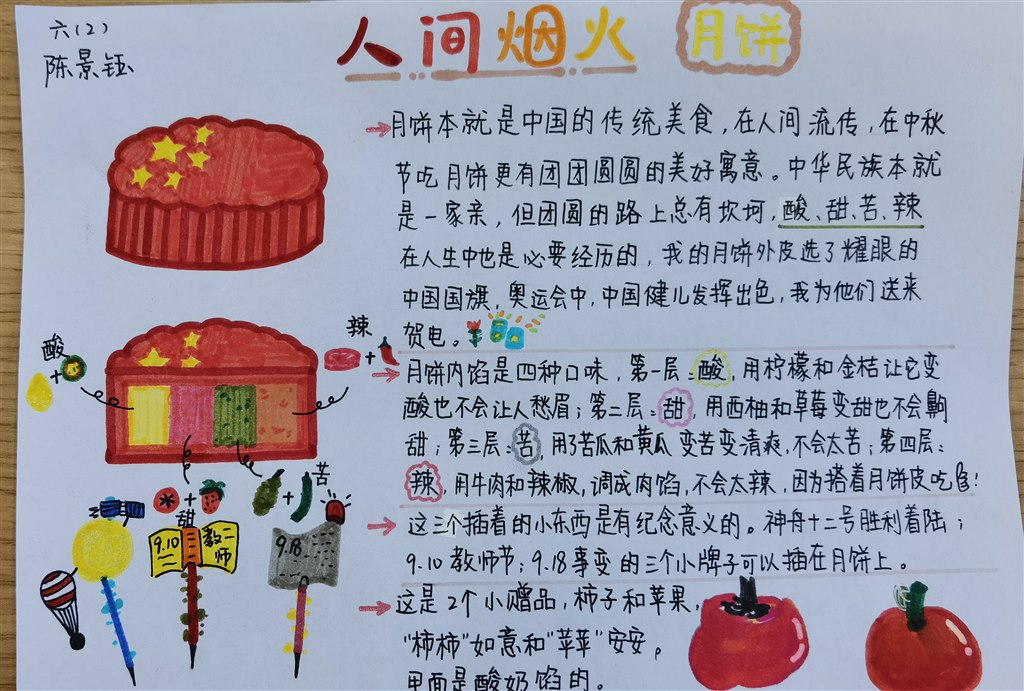 六(2)
陈景钰
人间烟火 月饼
月饼本就是中国的传统美食,在人间流传,在中秋
节吃月饼更有团团圆圆的美好寓意。中华民族本就
是一家亲,但团圆的路上总有坎坷,酸、甜、苦、辣
在人生中也是必要经历的,我的月饼外皮选了耀眼的
中国国旗,奥运会中,中国健儿发挥出色,我为他们送来
贺电。
月饼内馅是四种口味,第一层:酸,用柠檬和金桔让它变
酸也不会让人愁眉;第二层:甜,用西柚和草莓变甜也不会齁
甜;第三层:苦,用了苦瓜和黄瓜变苦变清爽,不会太苦;第四层:
辣,用牛肉和辣椒,调成肉馅,不会太辣,因为搭着月饼皮吃!
这三个插着的小东西是有纪念意义的。神舟十二号胜利着陆;
9.10教师节;9.18事变的三个小牌子可以插在月饼上。
这是2个小赠品,柿子和苹果,
“柿柿”如意和“苹苹”安安。
里面是酸奶馅的。
酸
+
辣
+
甜
+
苦
+
9.10
教师
9.18